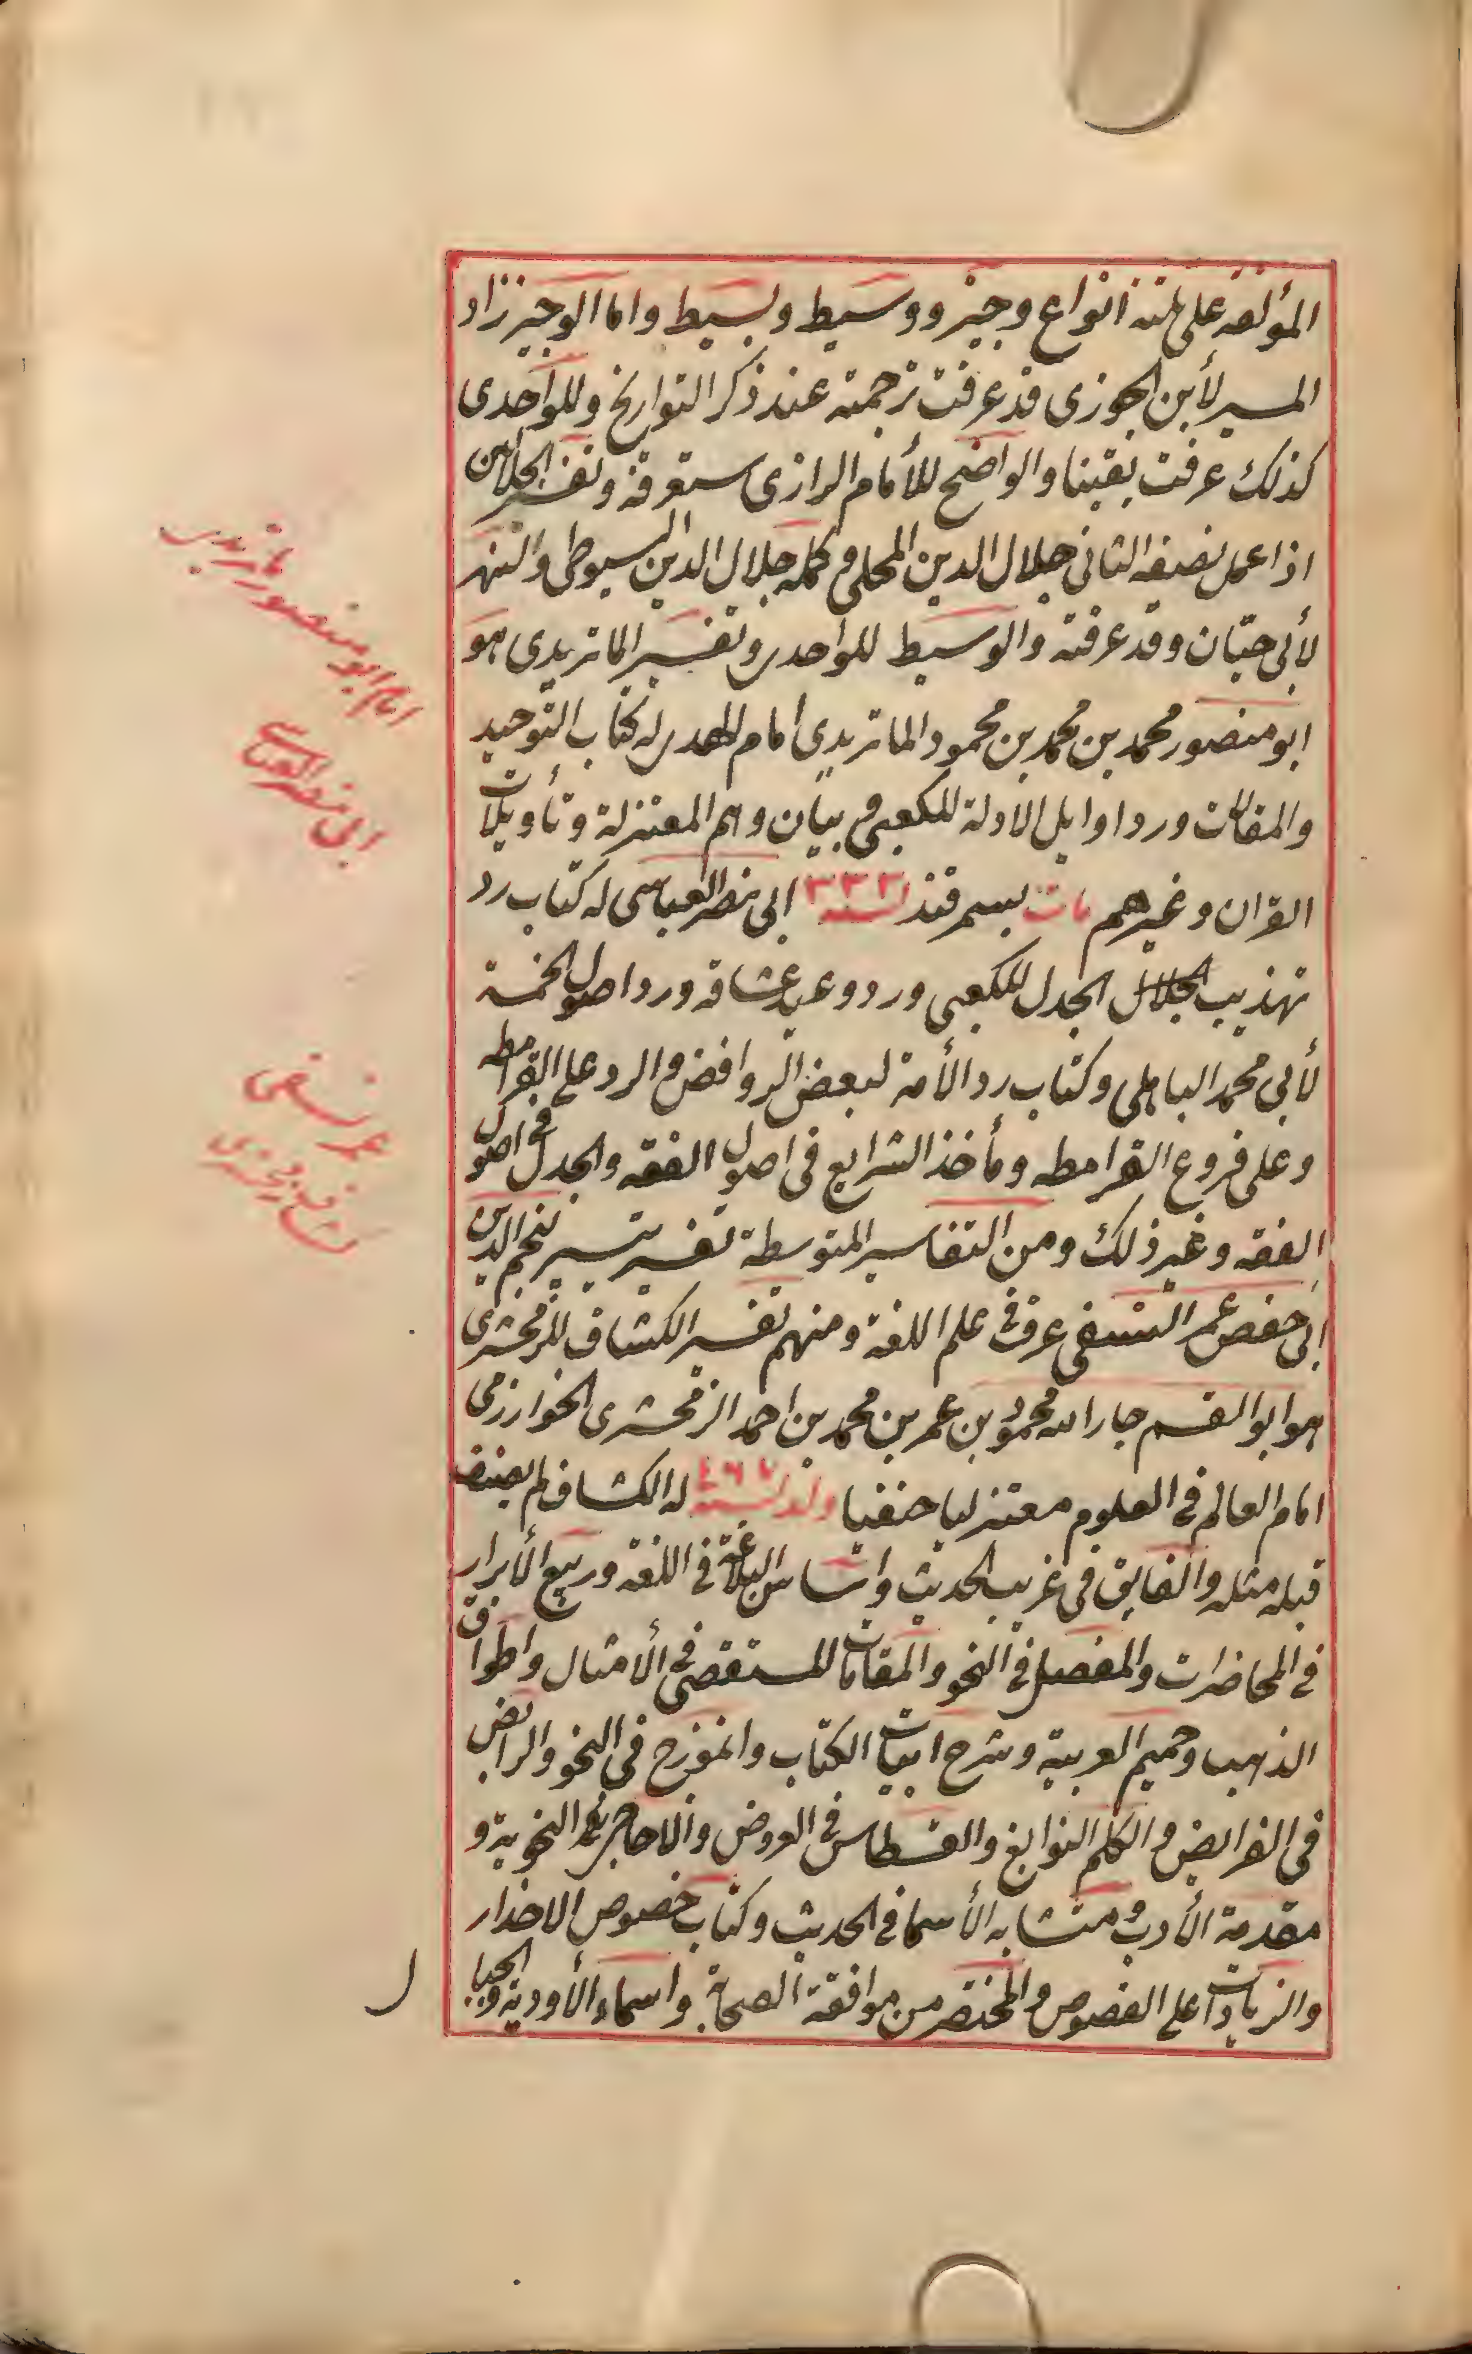 المؤلفه على ثلثه انواع وجيز ووسيط وبسيط واما الوجيز زاد
المسير لأبن الجوزى قد عرفت ترجمته عند ذكر التواريخ وللواحدى
كذلك عرفت يقينا والواضح للأمام الرازى ستعرفه وتفسير الجلالين
اذا عمل نصيفه الثانى جلال الدين المحلى وكمله جلال الدين السيوطى والنهر
لأبى حيّان وقد عرفته والوسيط للواحدى وتفسير الماتريدى هو
ابو منصور محمد بن محمد بن محمود الماتريدى امام المهدى له كتاب التوحيد
والمقالات ورد اوايل الادلة للكعبى وبيان وهم المعتزلة وتأويلات
القران وغيرهم مات بسمرقند سنه ٣٣٣ ابى نصر العياسى له كتاب رد
تهذيب الجدل للكعبى ورد وعيد عشاقه ورد اصول الخمسة
لأبى محمد الباهلى وكتاب رد الأمة لبعض الروافض والرد على القرامطه
وعلى فروع القرامطه ومأخذ الشرايع فى اصول الفقه والجدل فى اصول
الفقه وغير ذلك ومن التفاسير المتوسطة تفسير تيسير نجم الدين
ابى حفص عمر النسفى عرف فى علم اللغة ومنهم تفسير الكشاف للزمخشرى
هو ابو القسم جار الله محمود بن عمر بن محمد بن احمد الزمخشرى الخوارزمى
امام العالم فى العلوم معتزليا حنفيا ولد سنه ٤٦٧ له الكشاف لم يصنف
قبله مثله والفايق فى غريب الحديث واساس البلاغة فى اللغة وربيع الأبرار
فى المحاضرات والمفصل فى النحو والمقامات للمستقصى فى الأمثال واطواق
الذهب وحميم العربية وشرح ابيات الكتاب وانموزج فى النحو والرائض
فى الفرايض والكلم النوابغ والقسطاس فى العروض والاحاجى النحوية و
مقدمة الأدب ومتشابه الأسما فى الحديث وكتاب خصوص الاخدار
والزيادات على الفصوص والمختصر من موافقة الصحابة واسماء الأودية والجبا
ل
امام ابو منصور ماتريدى
ابى نصر العياسى
عمر نسفى